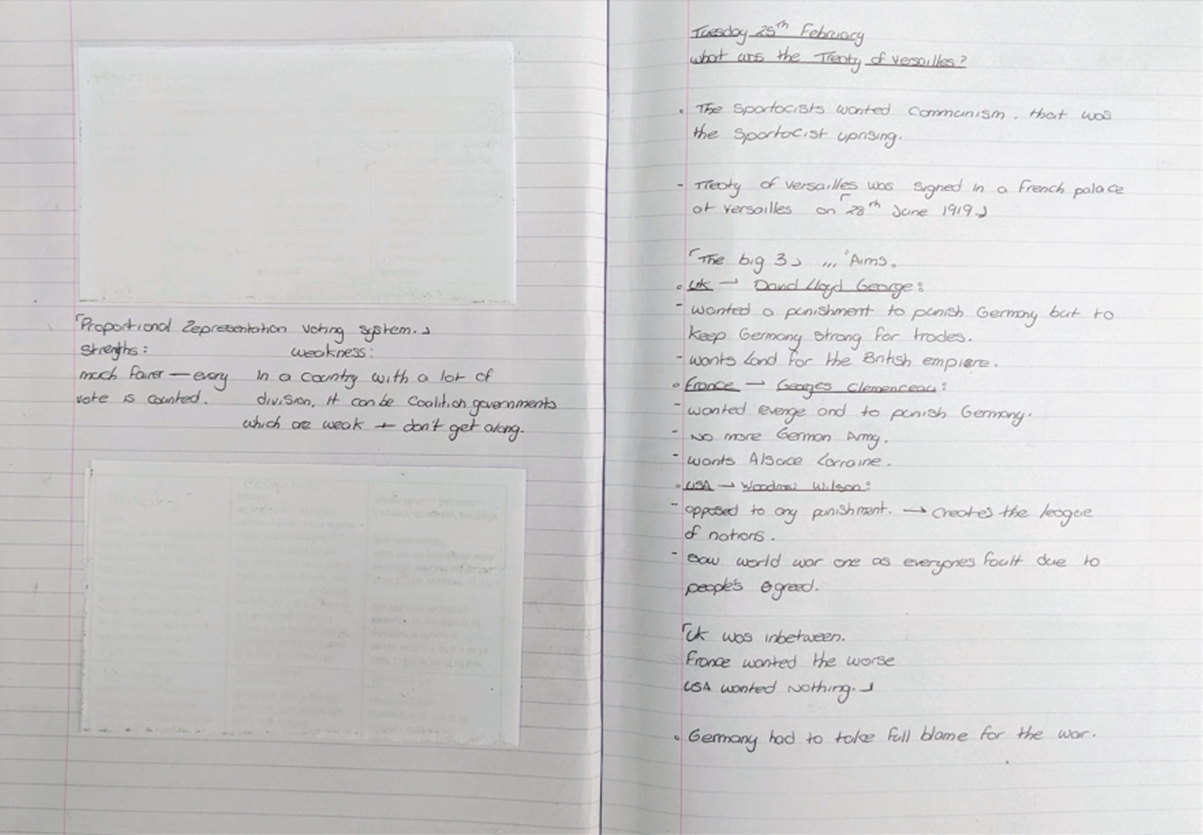 「Proportional Representation voting system.」
strengths: weakness:
much fairer — every In a country with a lot of
vote is counted. division, it can be coalition governments
which are weak + don't get along.
Tuesday 25th February
what was the Treaty of versailles?
• The Spartacists wanted Communism. that was
the Spartacist uprising.
- Treaty of versailles was signed in a french palace
at versailles on 「28th June 1919.」
「The big 3」 ... Aims.
• UK → David Lloyd George:
- wanted a punishment to punish Germany but to
keep Germany strong for trades.
- wants land for the British empiere.
• France → Georges Clemenceau:
- wanted evenge and to punish Germany.
- No more German Army.
- wants Alsace Lorraine.
• USA → Woodrow Wilson:
- opposed to any punishment. → creates the league
of nations.
- saw world war one as everyones fault due to
people's greed.
「UK was inbetween.
France wanted the worse
USA wanted Nothing.」
• Germany had to take full blame for the war.